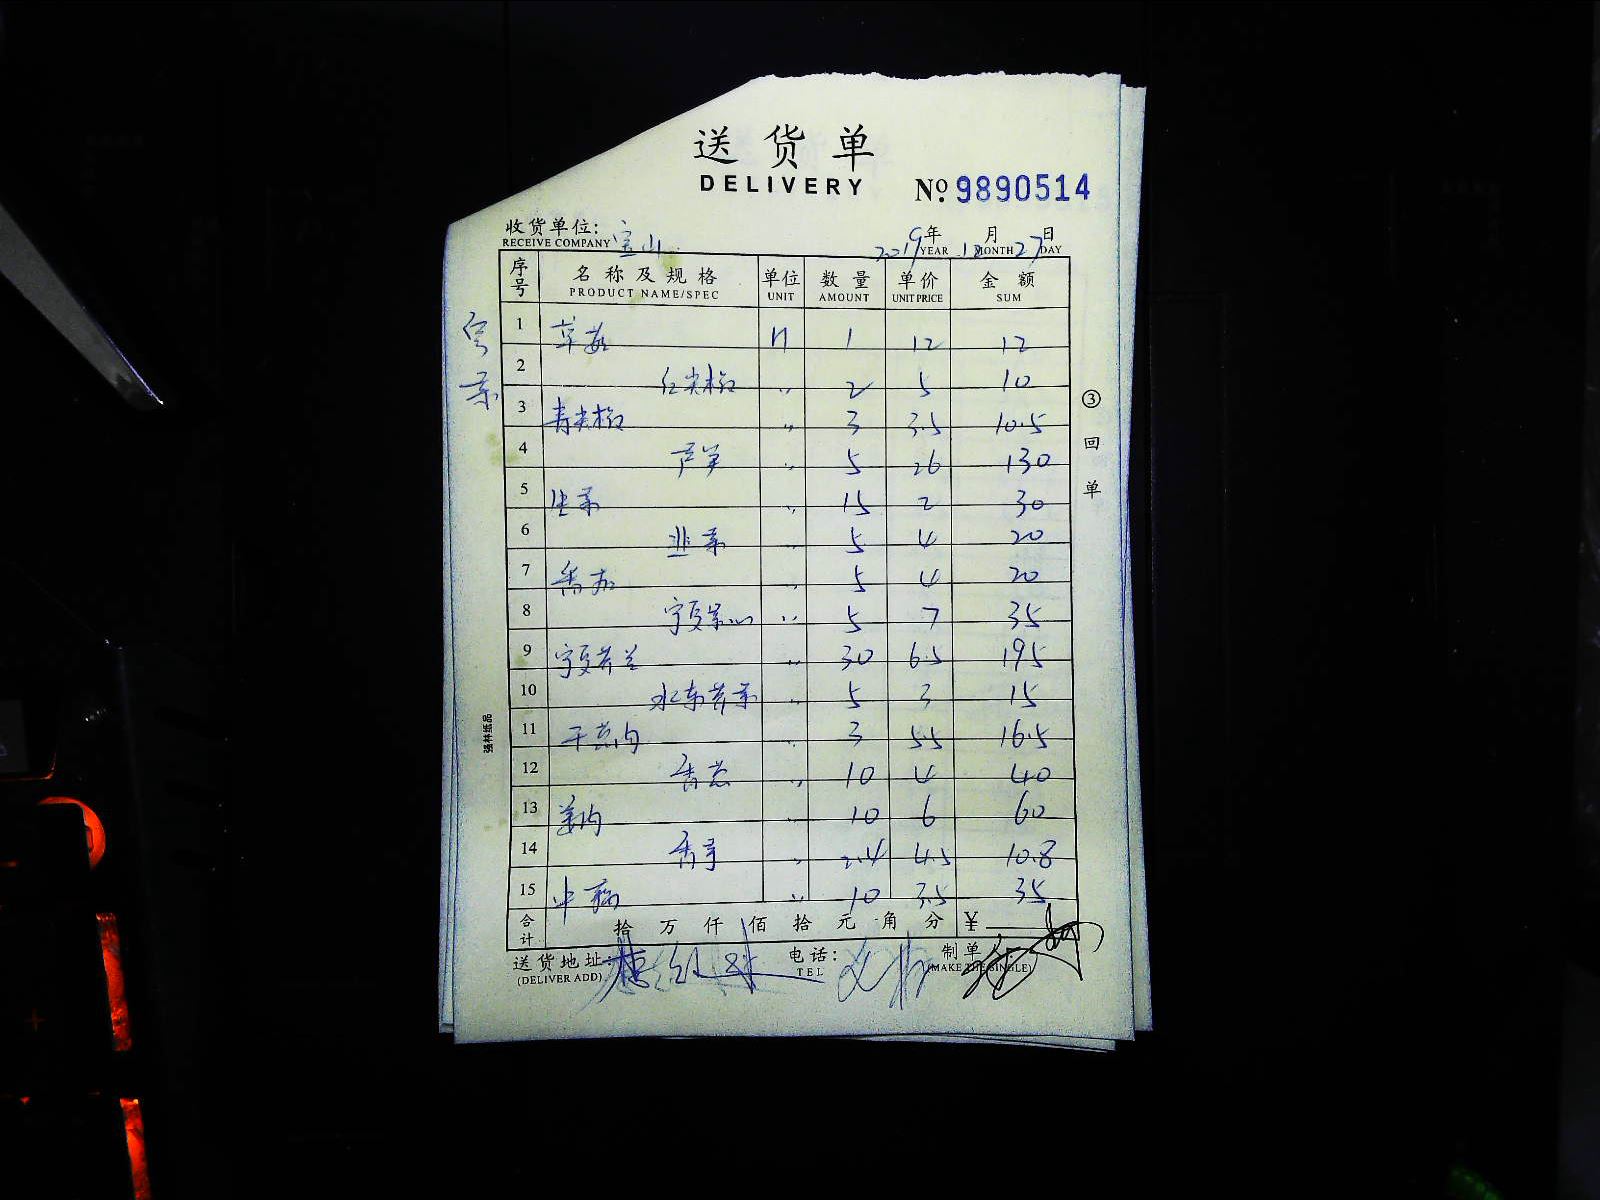 送货单
DELIVERY
No. 9890514
收货单位: 宝山
RECEIVE COMPANY
2019年 12月 27日
YEAR MONTH DAY
序号 名称及规格 单位 数量 单价 金额
PRODUCT NAME/SPEC UNIT AMOUNT UNIT PRICE SUM
1 草菇 斤 1 12 12
2 红尖椒 〃 2 5 10
3 青尖椒 〃 3 3.5 10.5
4 芦笋 〃 5 26 130
5 生菜 〃 15 2 30
6 韭菜 〃 5 4 20
7 〃 5 4 20
8 宁夏菜心 〃 5 7 35
9 宁夏芥兰 〃 30 6.5 195
10 水东芥菜 〃 5 3 15
11 干葱肉 〃 3 5.5 16.5
12 香葱 〃 10 4 40
13 姜肉 〃 10 6 60
14 香芋 〃 2.4 4.5 10.8
15 〃 10 3.5 35
合计 拾 万 仟 佰 拾 元 角 分 ¥
送货地址: 电话: 制单人:
(DELIVER ADD) TEL (MAKE THE SINGLE)
③回单
强林纸品